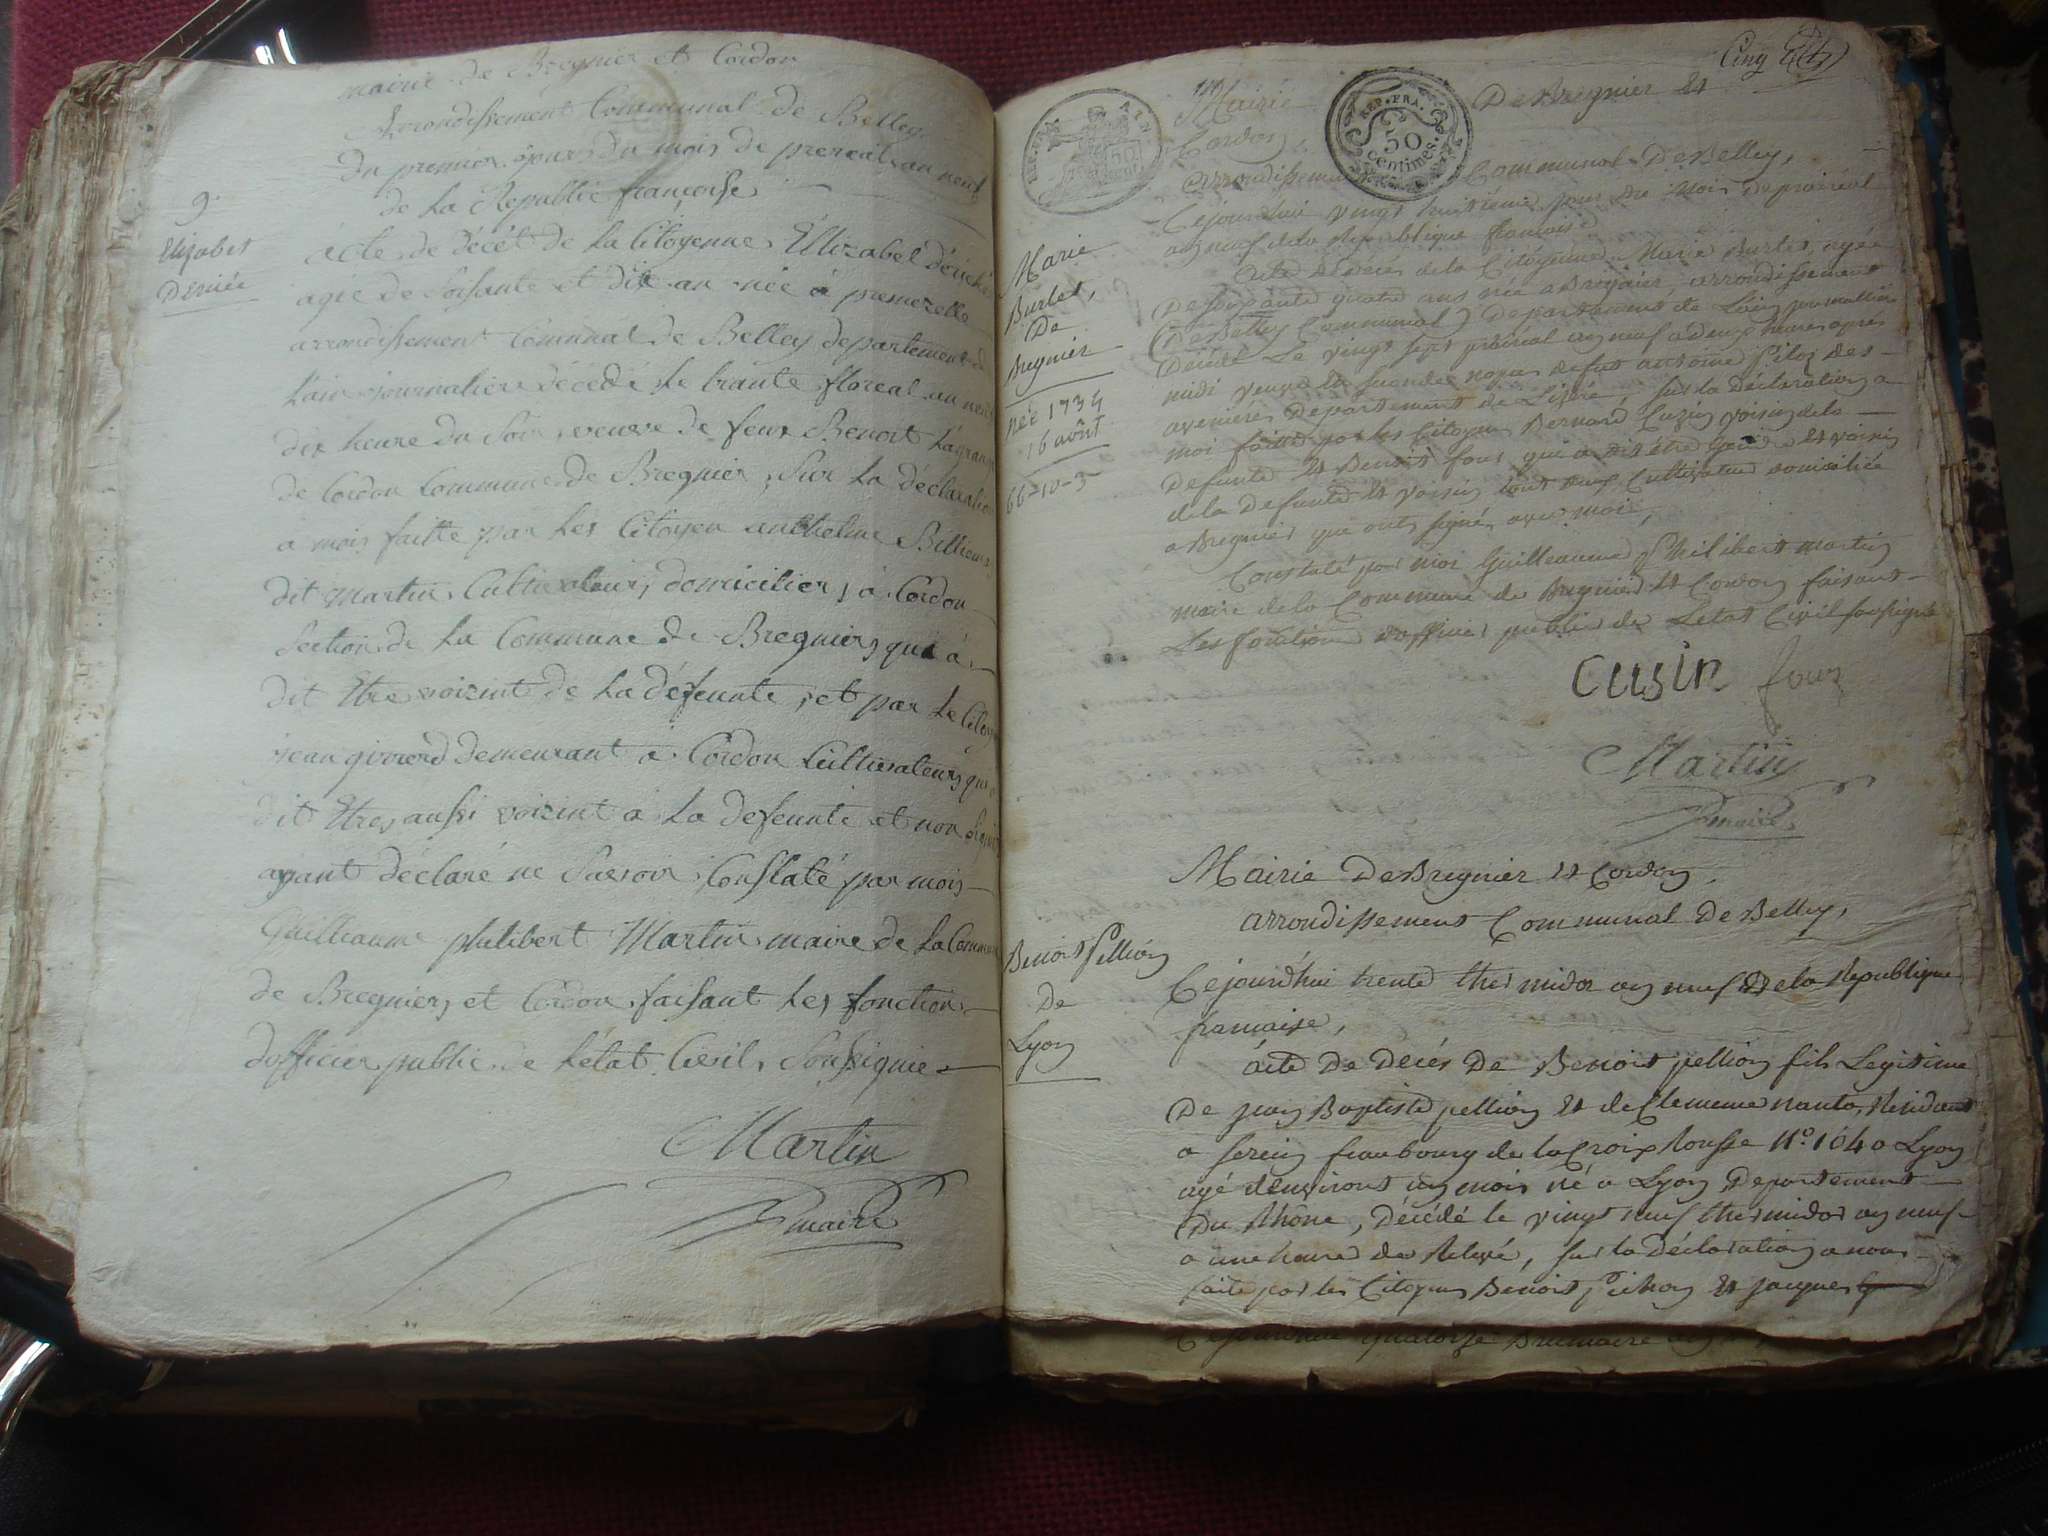 mairie de Bregnier et Cordon
Arrondissement Communal de Belley
Du premier jour du mois de prereal an neuf
de La Republic françoise
9.
Elizabet
Derriée
acte de décét de La Citoyenne Elizabet
agee de Soisante et dix an née à premezelle
arrondissement Comunal de Belley departement de
Lain journaliere décédé Le trante floreal an neuf
dix heure du Soir, veuve de feux Benoit Lagrange
de Cordon Commune de Bregnier, Sur La déclaration
a mois faitte par Les Citoyen anthelme Billiemaz
dit Martin Cultivateur, domicilier, à Cordon
Section de La Commune de Bregnier, qui à
dit Etre voizint de La défeunte, et par Le Citoyen
jean girrerd demeurant à Cordon Cultivateur, qui a
dit Etres, aussi voizint à La defeunte et non Signier
ayant déclaré ne Savoir, Constaté par mois
Guilleaume philibert Martin maire de La Commune
de Bregnier, et Cordon faisant Les fonction
dofficier public de Létat Civil, Soussignie
Martin
maire
Cinq
Mairie De Bregnier et
Cordon
REP. FRA.
50
centimes.
AIN
arrondissement Communal De Belley,
Cejourdhui vingt huitieme jour du Mois de prairéal
an neuf de la République francaise
Marie
Burlet,
De
Bregnier
née 1734
16 août
66-10-3
Acte de décés de la Citöyenne Marie Burlet, agée
De soixante quatre ans née a Bregnier, arrondissement
(De Belley Communal) Departement de Lain journalliere
Décédé Le vingt sept prairéal an neuf a deux heures aprés
midi veuve en secondes noces defut antoine pitoz des
avenieres Departement de Lisére, sur la Déclaration a
moi faitte par les Citoyens Bernard Cuzin voisin de la
Defunte et Benoit four qui a dit être et voisin
de la Defunte et voisin tout deux Cultivateur domiciliée
a Bregnier que ont signés avec moi,
Constaté par moi Guilleaume Philibert martin
maire de la Commune de Bregnier et Cordon faisant
Les fonctions dofficier public de Letat Civil soussigné
Cusin four
Martin
maire
Mairie De Bregnier et Cordon,
arrondissement Communal De Belley,
Benoit Pellion
De
Lyon
Cejourdhui trente thermidor an neuf de la République
francaise,
Acte De Décés De Benoit pellion fils Legitime
De jean Baptiste pellion et de Clemence nanta, Résidant
a serein feaubourg de la Croix Rousse N.º 164 a Lyon
agé denviront un mois né a Lyon Departement
Du Rhône, Décédé le vingt neuf thermidor an neuf
a une heure de Relevé, sur la Déclaration a nous
faite par les Citoyens Benoit Pichon et jacques
Cejourdhui quatorze Brumaire an